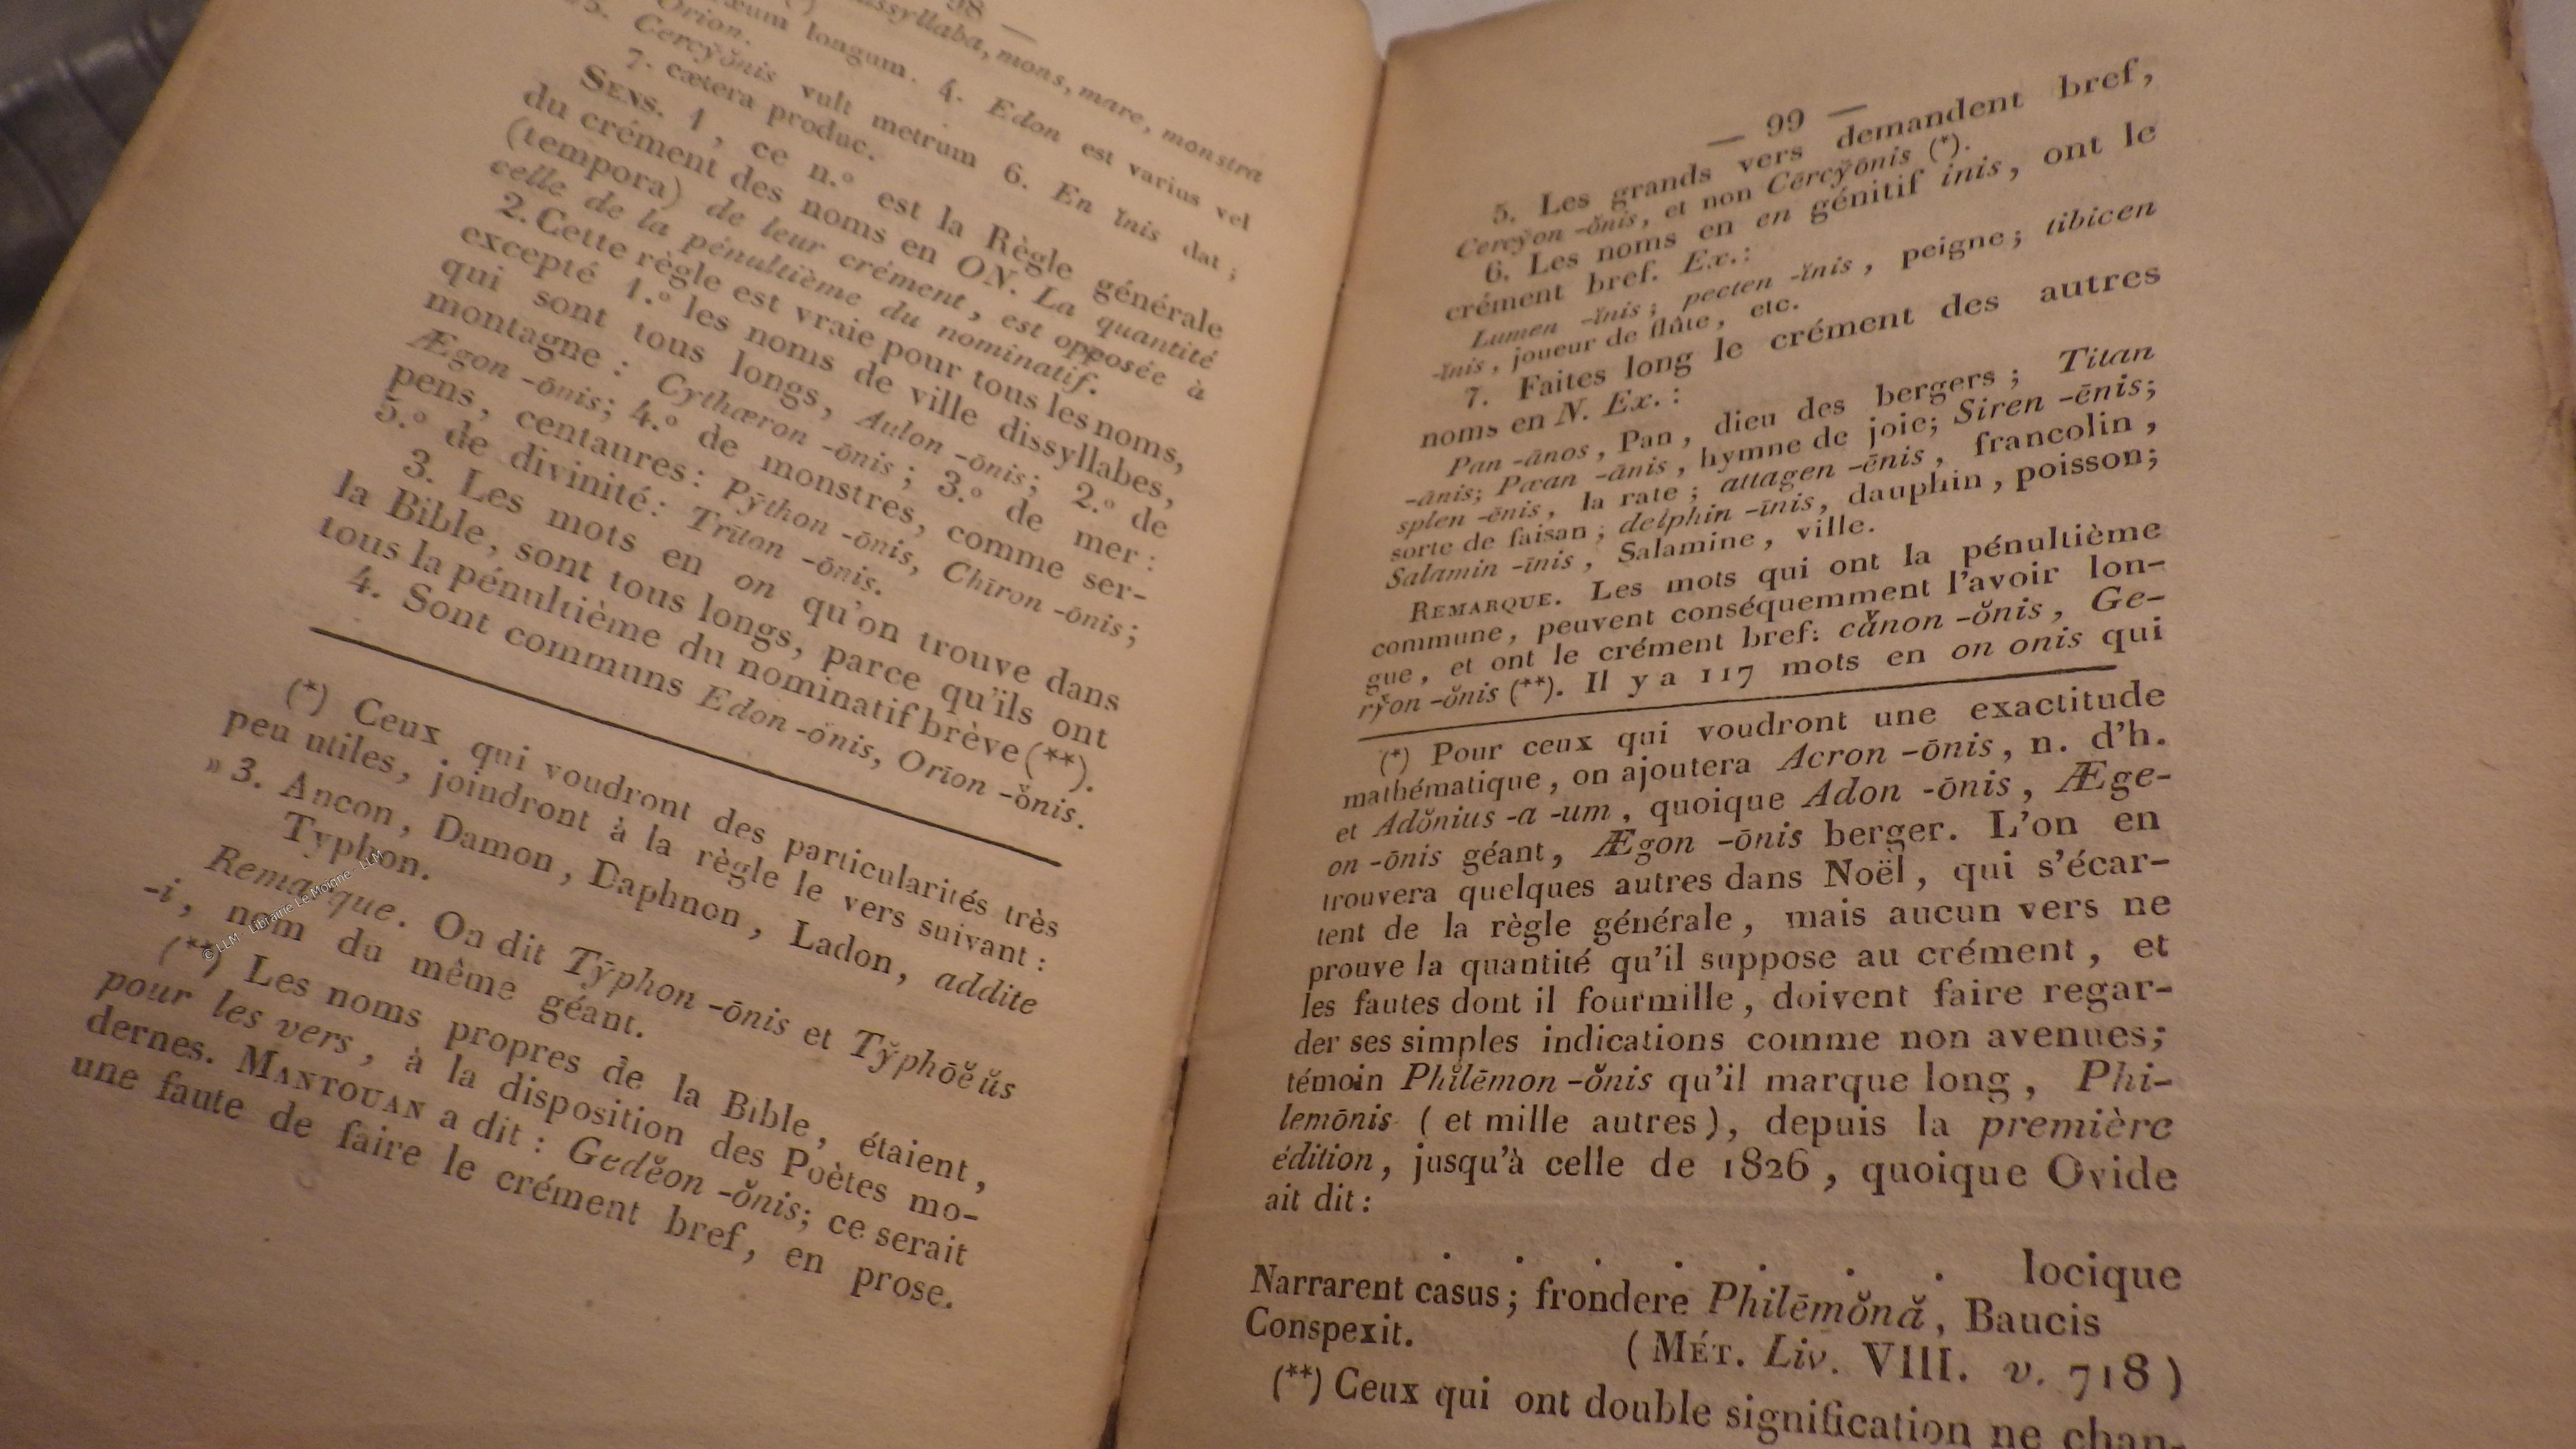 98 —
dissyllaba, mons, mare, monstra
longum. 4. Edon est varius vel
Orion.
Cercy̆ŏnis vult metrum 6. En ĭnis dat ;
7. cætera produc.
SENS. 1, ce n.° est la Règle générale
du crément des noms en ON. La quantité
(tempora) de leur crément, est opposée à
celle de la pénultième du nominatif.
2. Cette règle est vraie pour tous les noms,
excepté 1.° les noms de ville dissyllabes,
qui sont tous longs, Aulon -ōnis; 2.° de
montagne : Cythæron -ōnis ; 3.° de mer :
Ægon -ōnis; 4.° de monstres, comme ser-
pens, centaures: Pȳthon -ōnis, Chīron -ōnis;
5.° de divinité: Trīton -ōnis.
3. Les mots en on qu'on trouve dans
la Bible, sont tous longs, parce qu'ils ont
tous la pénultième du nominatif brève (**).
4. Sont communs Edon -ōnis, Orīon -ŏ̄nis.
(*) Ceux qui voudront des particularités très
peu utiles, joindront à la règle le vers suivant :
» 3. Ancon, Damon, Daphnon, Ladon, addite
Typhon.
Remarque. On dit Tȳphon -ōnis et Ty̆phōĕŭs
-i, nom du même géant.
(**) Les noms propres de la Bible, étaient,
pour les vers, à la disposition des Poètes mo-
dernes. MANTOUAN a dit : Gedĕon -ŏnis; ce serait
une faute de faire le crément bref, en prose.
© LLM - Librairie Le Moigne - LLM
— 99 —
5. Les grands vers demandent bref,
Cercy̆on -ŏnis, et non Cērcy̆ōnis (*).
6. Les noms en en génitif inis, ont le
crément bref. Ex.:
Lumen -ĭnis; pecten -ĭnis, peigne; tibicen
-ĭnis, joueur de flûte, etc.
7. Faites long le crément des autres
noms en N. Ex. :
Pan -ānos, Pan, dieu des bergers; Titan
-ānis; Pæan -ānis, hymne de joie; Siren -ēnis;
splen -ēnis, la rate; attagen -ēnis, francolin,
sorte de faisan; delphin -īnis, dauphin, poisson;
Salamin -īnis, Salamine, ville.
REMARQUE. Les mots qui ont la pénultième
commune, peuvent conséquemment l'avoir lon-
gue, et ont le crément bref: cā̆non -ŏnis, Ge-
rȳ̆on -ŏnis (**). Il y a 117 mots en on onis qui
(*) Pour ceux qui voudront une exactitude
mathématique, on ajoutera Acron -ōnis, n. d'h.
et Adŏnius -a -um, quoique Adon -ōnis, Æge-
on -ōnis géant, Ægon -ōnis berger. L'on en
trouvera quelques autres dans Noël, qui s'écar-
tent de la règle générale, mais aucun vers ne
prouve la quantité qu'il suppose au crément, et
les fautes dont il fourmille, doivent faire regar-
der ses simples indications comme non avenues;
témoin Phĭlēmon -ŏnis qu'il marque long, Phi-
lemōnis (et mille autres), depuis la première
édition, jusqu'à celle de 1826, quoique Ovide
ait dit :
. . . . . . . locique
Narrarent casus; frondere Philēmŏnă, Baucis
Conspexit.
(MÉT. Liv. VIII. v. 718)
(**) Ceux qui ont double signification ne chan-